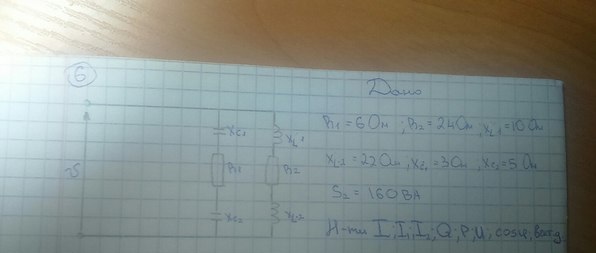 6
Дано
R1 = 6 Ом ; R2 = 24 Ом , XL1 = 10 Ом
XL2 = 22 Ом , XC1 = 3 Ом , XC2 = 5 Ом
S2 = 160 ВА
Н-ти I ; I1 ; I2 ; Q ; P ; U ; cosφ ,
XC1
XL1
R1
R2
XC2
XL2